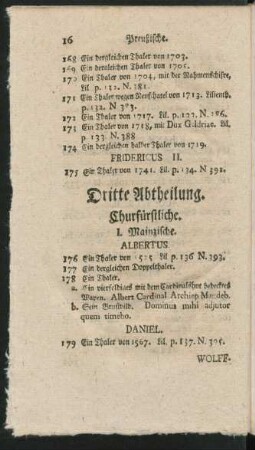 16 Preußische.
168 Ein dergleichen Thaler von 1703.
169 Ein dergleichen Thaler von 1705.
170 Ein Thaler von 1704, mit der Nahmenschifre, Lil. p. 131. N. 381.
171 Ein Thaler wegen Neufchatel von 1713. Lilienth. p. 132. N. 383.
172 Ein Thaler von 1717. Lil. p. 133. N. 386.
173 Ein Thaler von 1718, mit Dux Geldriae. Lil. p. 133. N. 388
174 Ein dergleichen halber Thaler von 1719.
FRIDERICUS II.
175 Ein Thaler von 1741. Lil. p. 134. N 391.
Dritte Abtheilung.
Churfürstliche.
I. Mainzische.
ALBERTUS
176 Ein Thaler von Lil p. 136 N. 393.
177 Ein dergleichen Doppelthaler.
178 Ein Thaler.
a. Ein vierfeldiges mit dem Cardinalshute bedecktes
Wapen. Albert Cardinal Archiep Mandeb.
b. Sein Brustbild. Dominus mihi adjutor
quem timebo.
DANIEL.
179 Ein Thaler von 1567. Lil. p. 137. N. 395.
WOLFF-